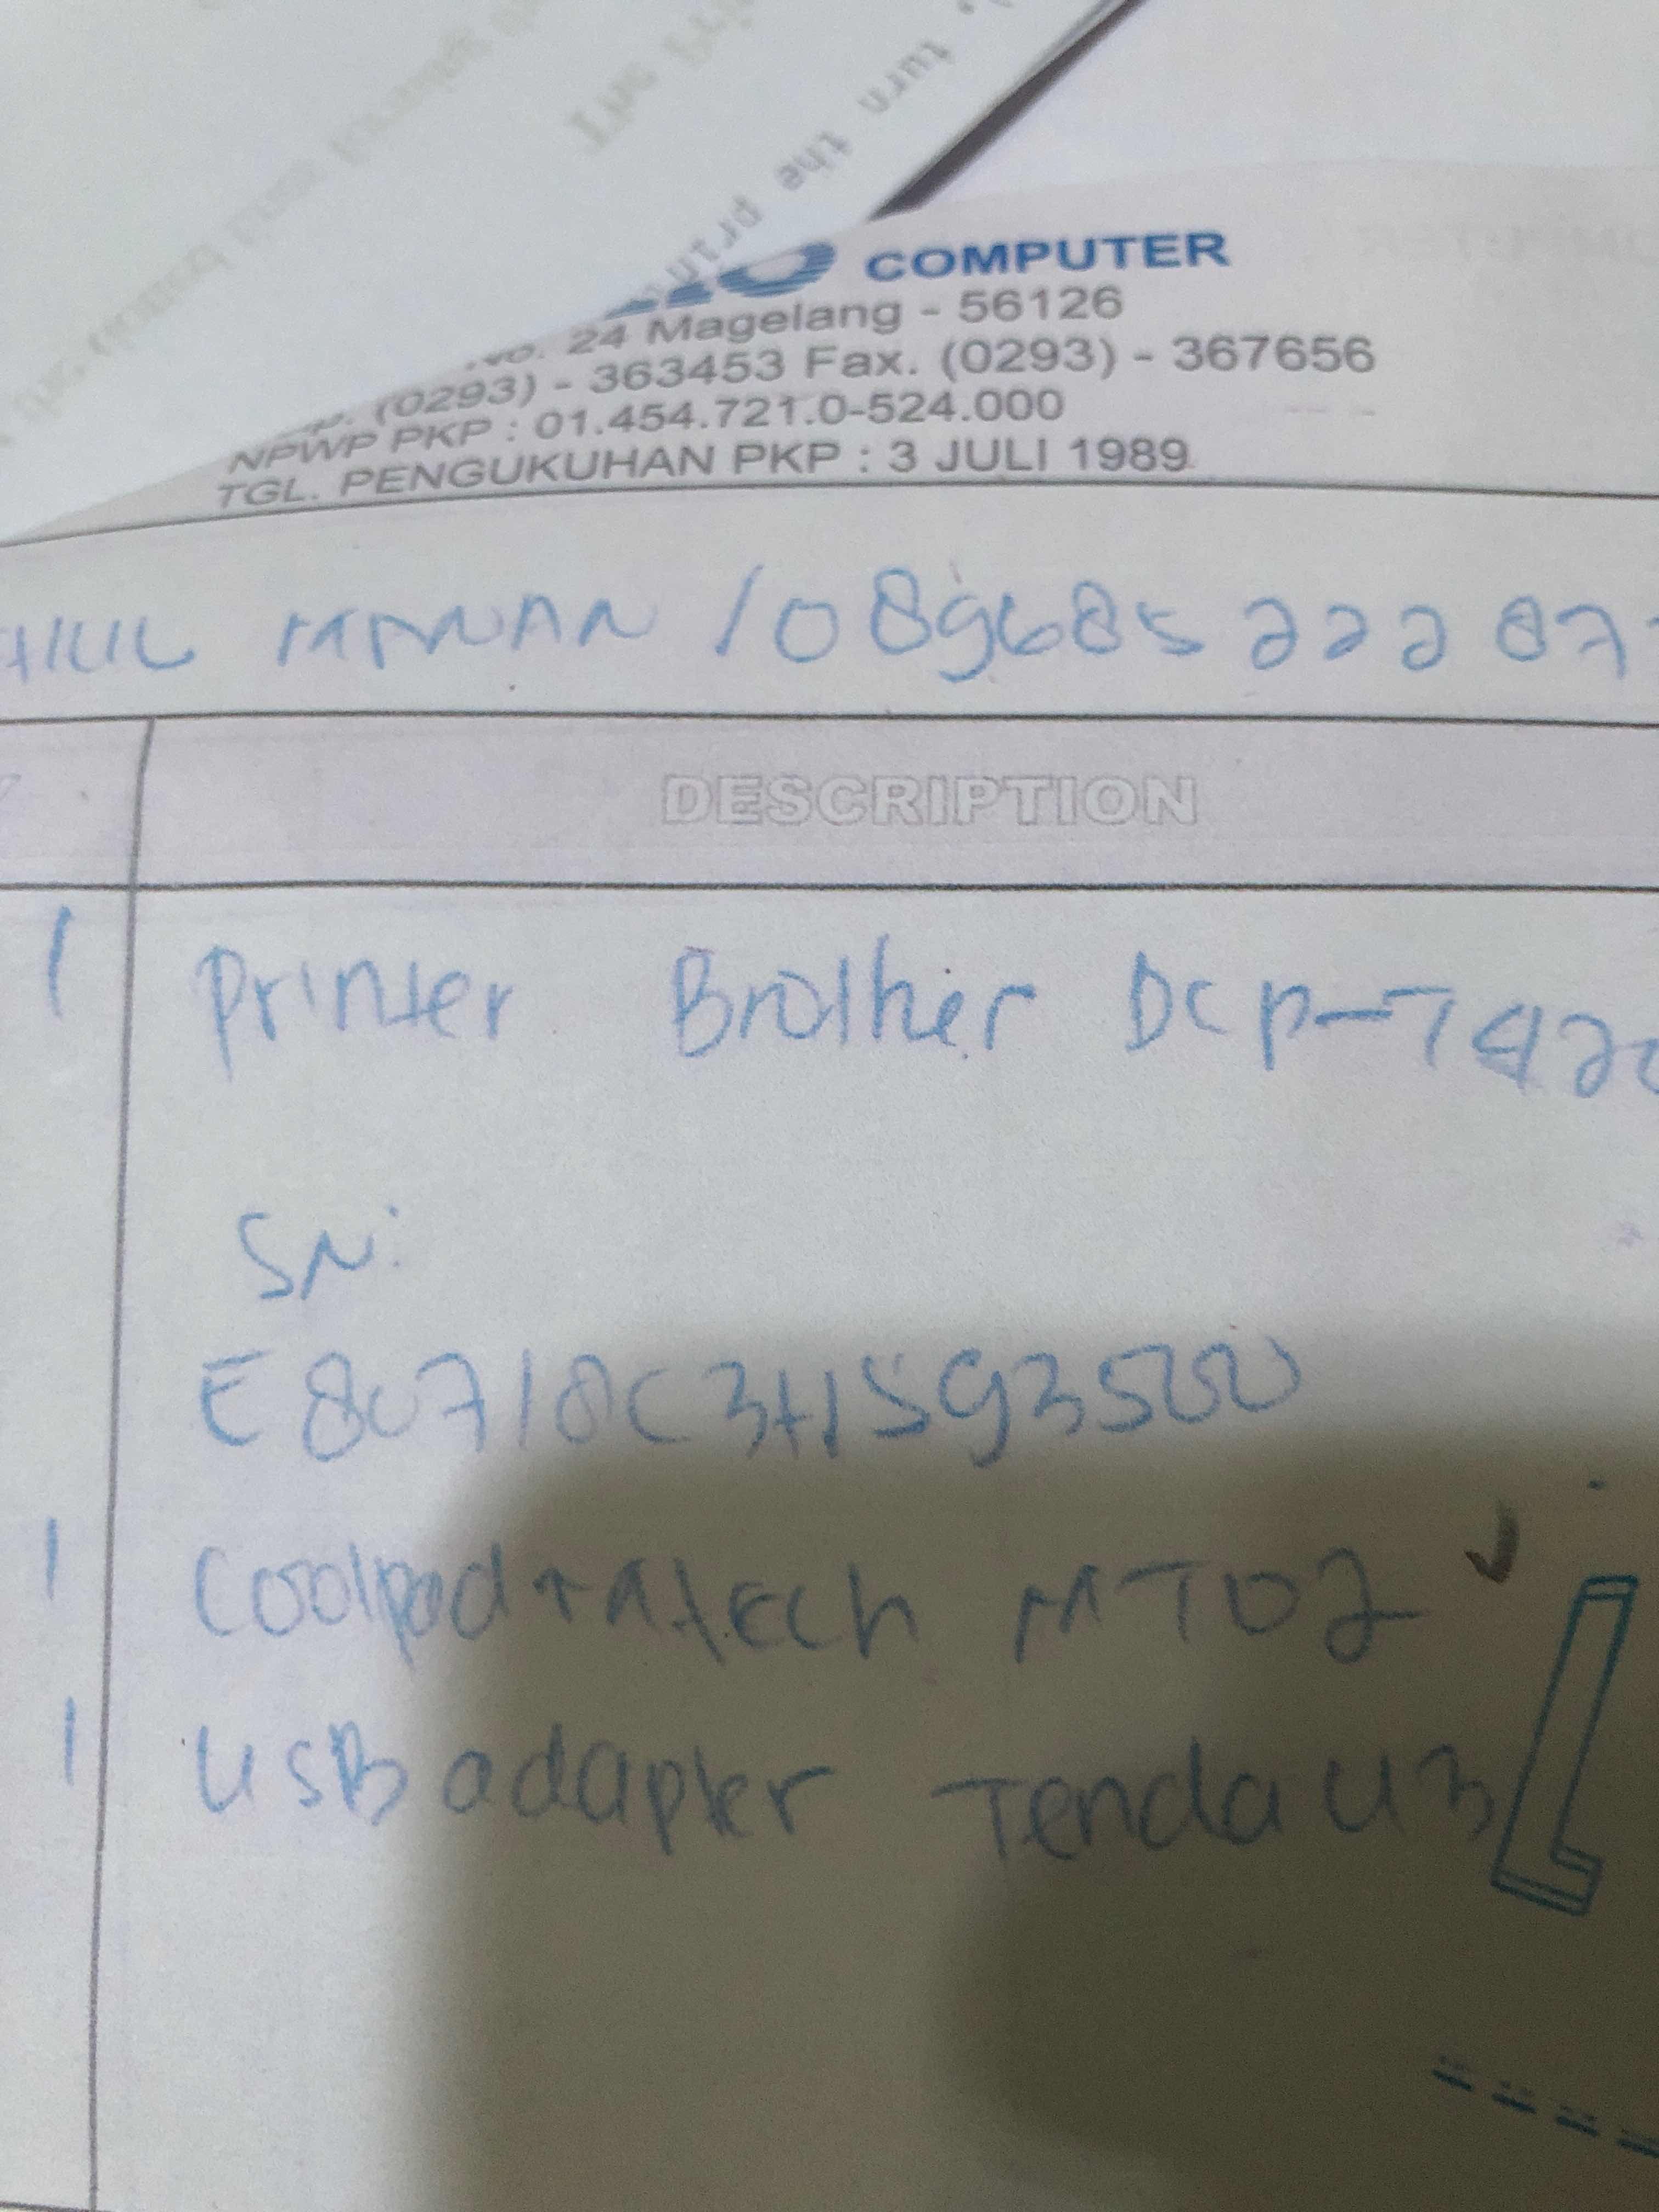 turn the
COMPUTER
No. 24 Magelang - 56126
(0293) - 363453 Fax. (0293) - 367656
NPWP PKP : 01.454.721.0-524.000
TGL. PENGUKUHAN PKP : 3 JULI 1989
MANNAN / 089685 222 87
DESCRIPTION
1 Printer Brother DCP-T420
SN:
E80718C3H159G3500
1 Coolpad + Mtech MT02
1 USB adapter Tenda U3